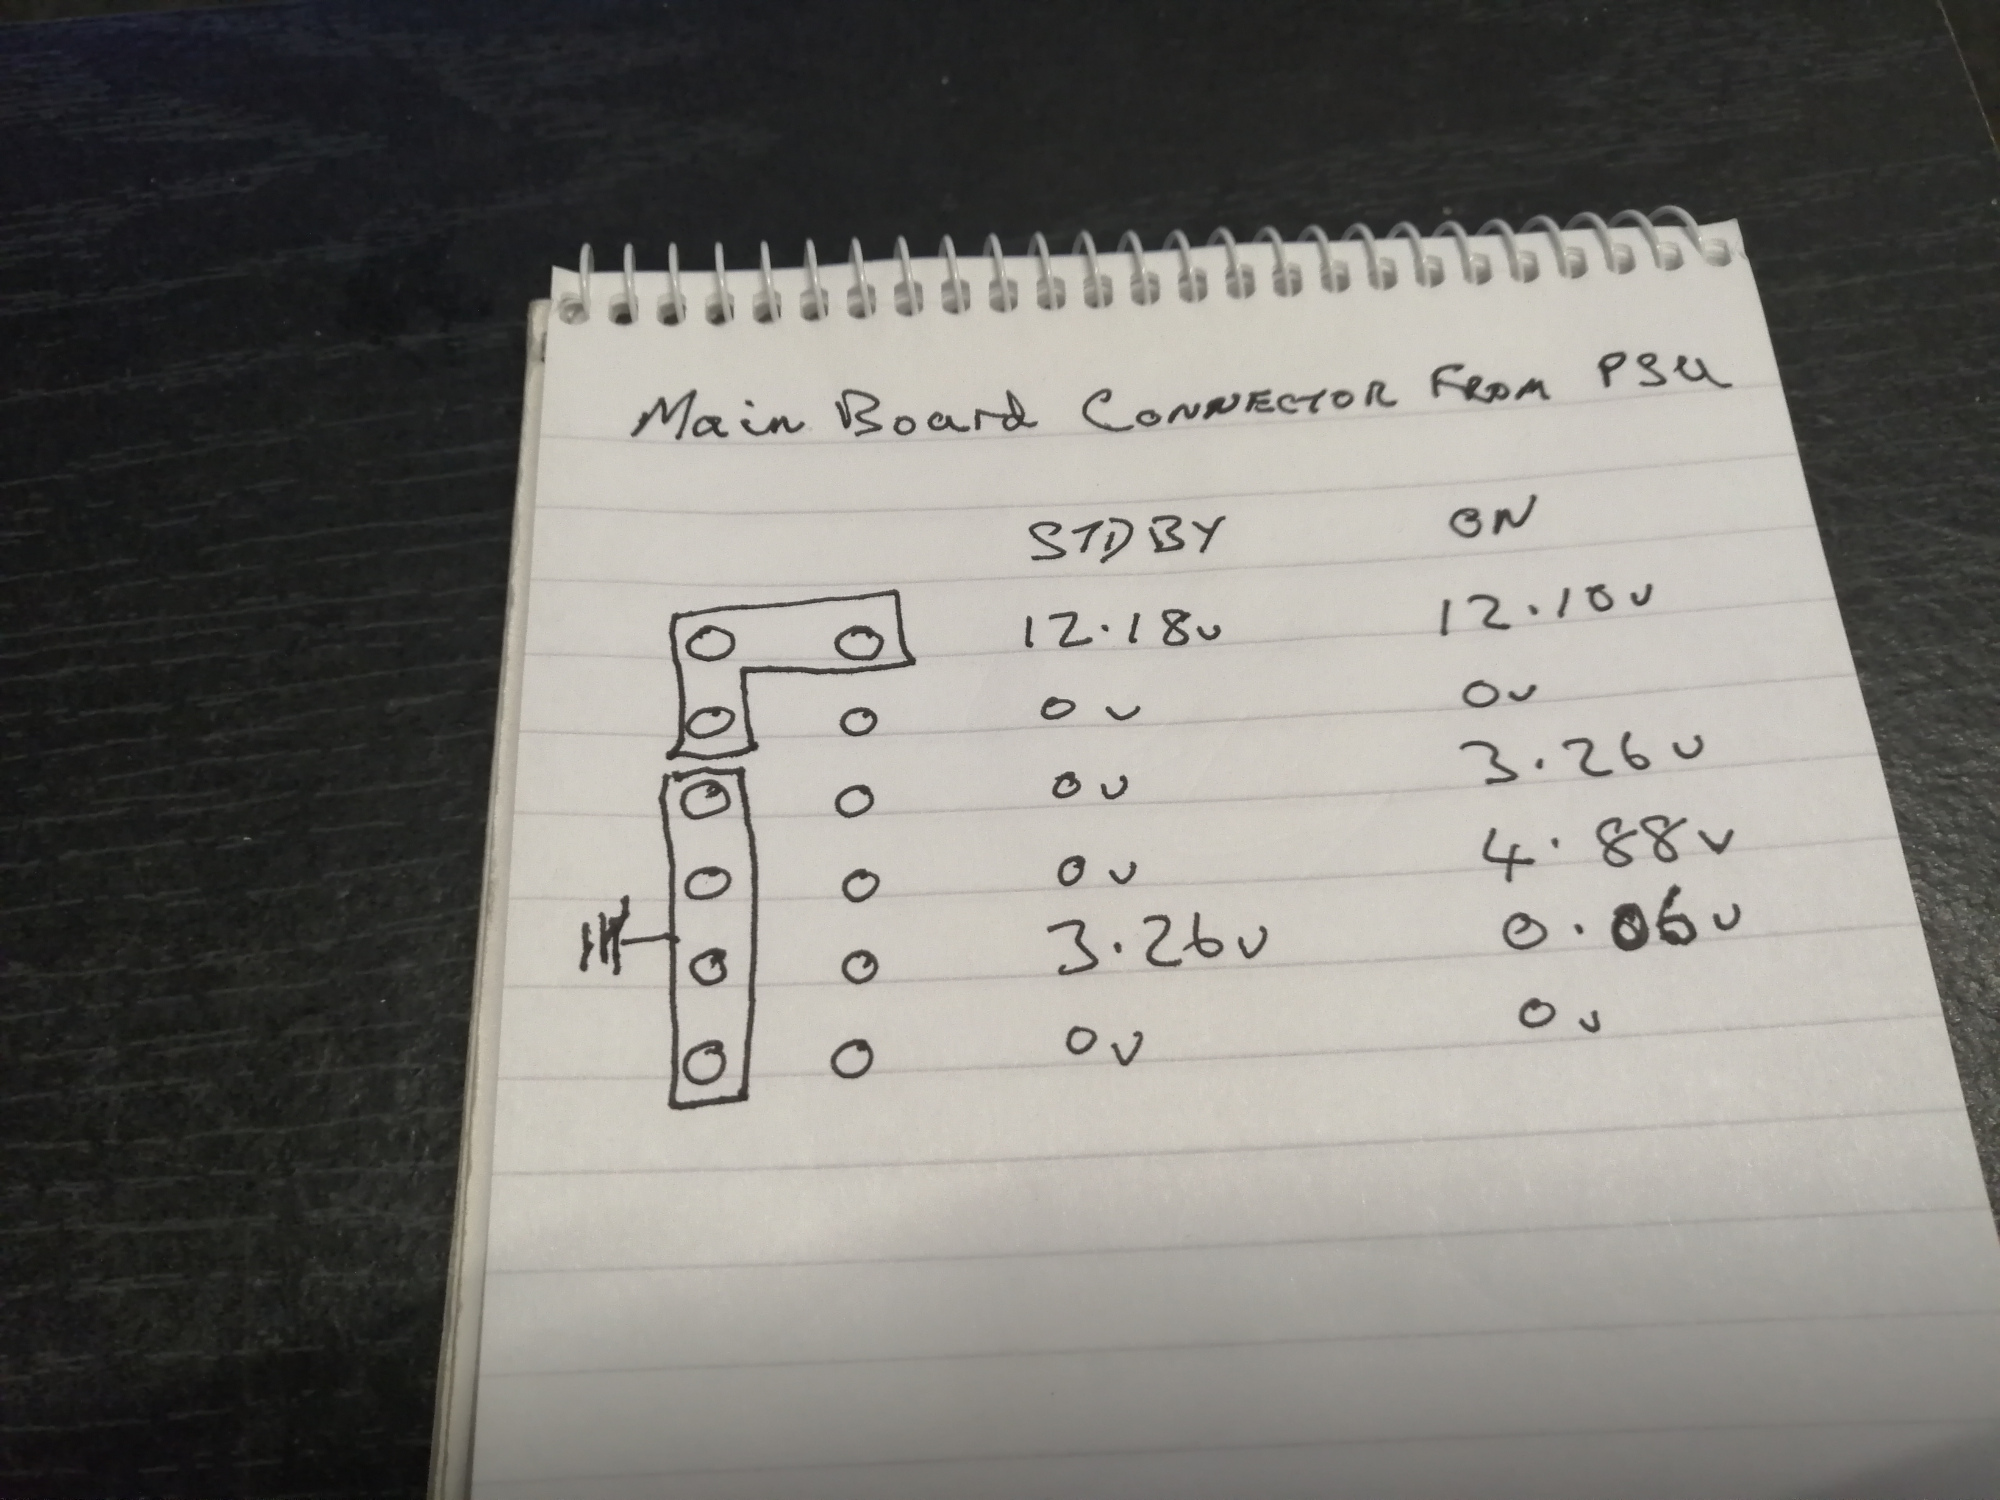 Main Board CONNECTOR FROM PSU
STDBY ON
12.18v 12.10v
0v 0v
0v 3.26v
0v 4.88v
3.26v 0.06v
0v 0v